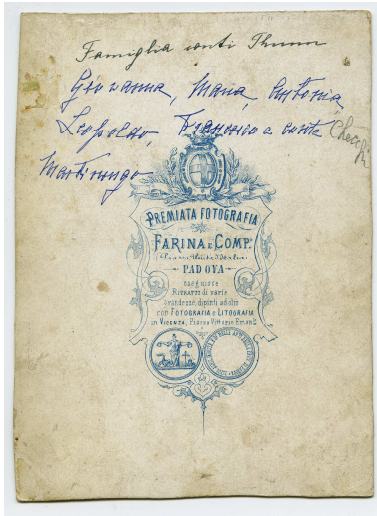 Famiglia conti Thunn
Giovanna, Maria, Antonia,
Leopoldo, Francesco e conte
Martinengo
PREMIATA FOTOGRAFIA
FARINA E COMP.
PADOVA
eseguisce
RITRATTI di varie
grandezze, dipinti ad olio
con FOTOGRAFIA E LITOGRAFIA
in VICENZA, Piazza Vittorio Eman.